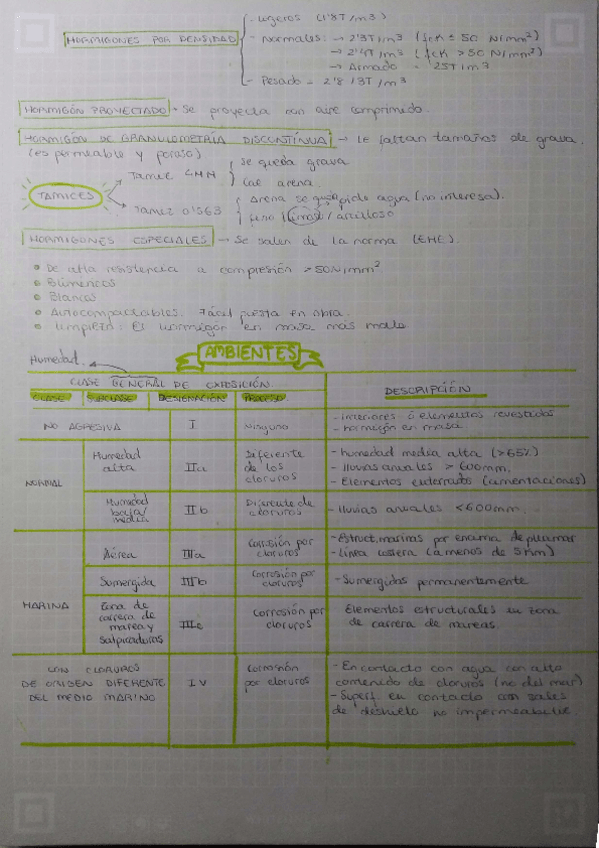 - Ligeros (1'8T/m3)
HORMIGONES POR DENSIDAD - Normales: → 2'3T/m3 (fck ≤ 50 N/mm²)
→ 2'4T/m3 (fck > 50 N/mm²)
→ Armado = 25T/m3
- Pesado = 2'8 / 3T/m3
HORMIGÓN PROYECTADO - Se proyecta con aire comprimido.
HORMIGÓN DE GRANULOMETRÍA DISCONTÍNUA → le faltan tamaños de grava.
(es permeable y poroso)
TAMICES
Tamiz 4MM
se queda grava
cae arena
Tamiz 0'563
arena se queda pide agua (no interesa).
fino / limoso / arcilloso
HORMIGONES ESPECIALES → Se salen de la norma (EHE).
• De alta resistencia a compresión > 50N/mm²
• Blancos
• Autocompactables: Fácil puesta en obra.
• Limpieza: El hormigón en masa más malo
Humedad.
AMBIENTES
CLASE GENERAL DE EXPOSICIÓN
DESCRIPCIÓN
CLASE SUBCLASE DESIGNACIÓN PROCESO
NO AGRESIVA I Ninguno - interiores o elementos revestidos
- hormigón en masa
NORMAL Humedad alta IIa Diferente de los cloruros - humedad media alta (>65%)
- lluvias anuales > 600mm.
- Elementos enterrados (cimentaciones)
Humedad baja/media IIb Diferente de cloruros - lluvias anuales < 600mm.
MARINA Aérea IIIa Corrosión por cloruros - Estruct. marinas por encima de pleamar
- Línea costera (a menos de 5km)
Sumergida IIIb Corrosión por cloruros - Sumergidas permanentemente
Zona de carrera de marea y salpicaduras IIIc Corrosión por cloruros Elementos estructurales en zona
de carrera de mareas.
CON CLORUROS DE ORIGEN DIFERENTE DEL MEDIO MARINO IV Corrosión por cloruros - En contacto con agua con alto
contenido de cloruros (no del mar)
- Superf. en contacto con sales
de deshielo no impermeabiliz.